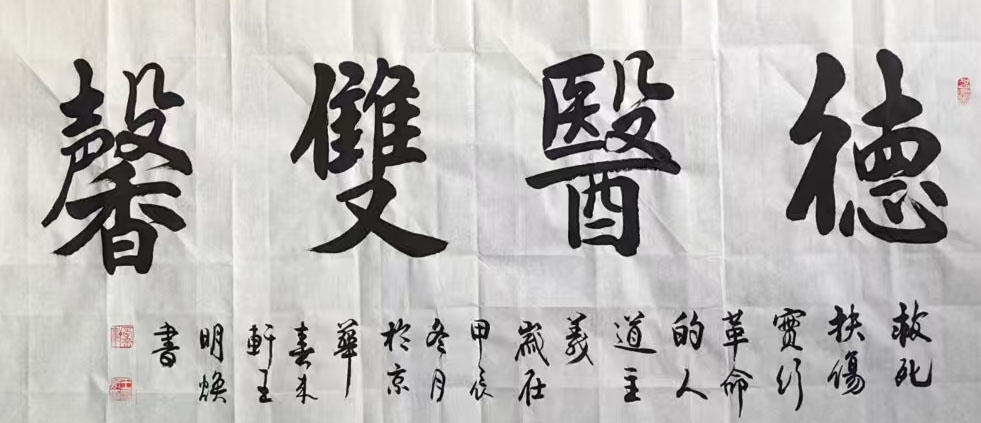 德醫雙馨
救死
扶傷
實行
革命
的人
道主
義
歲在
甲辰
冬月
於京
華
春來
軒王
明煥
書